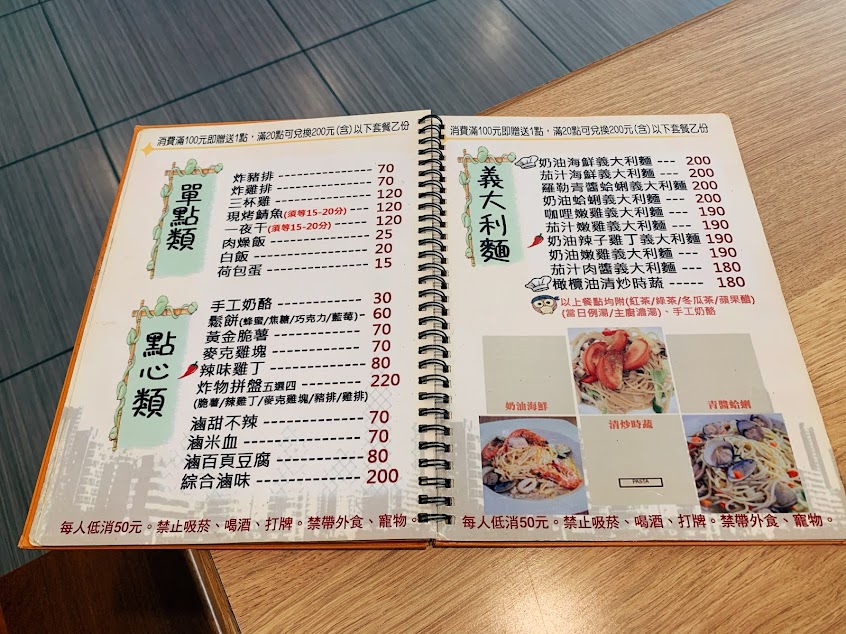 消費滿100元即贈送1點，滿20點可兌換200元(含)以下套餐乙份
單點類
炸豬排 ---------------- 70
炸雞排 ---------------- 70
三杯雞 ---------------- 120
現烤鯖魚(須等15-20分) --- 120
一夜干(須等15-20分) ----- 120
肉燥飯 ---------------- 25
白飯 ------------------ 20
荷包蛋 ---------------- 15
點心類
手工奶酪 -------------- 30
鬆餅(蜂蜜/焦糖/巧克力/藍莓)- 60
黃金脆薯 -------------- 70
麥克雞塊 -------------- 70
辣味雞丁 -------------- 80
炸物拼盤五選四 --------- 220
(脆薯/辣雞丁/麥克雞塊/豬排/雞排)
滷甜不辣 -------------- 70
滷米血 ---------------- 70
滷百頁豆腐 ------------ 80
綜合滷味 -------------- 200
每人低消50元。禁止吸菸、喝酒、打牌。禁帶外食、寵物。
消費滿100元即贈送1點，滿20點可兌換200元(含)以下套餐乙份
義大利麵
奶油海鮮義大利麵 --- 200
茄汁海鮮義大利麵 --- 200
羅勒青醬蛤蜊義大利麵 200
奶油蛤蜊義大利麵 --- 200
咖哩嫩雞義大利麵 --- 190
茄汁嫩雞義大利麵 --- 190
奶油辣子雞丁義大利麵 190
奶油嫩雞義大利麵 --- 190
茄汁肉醬義大利麵 --- 180
橄欖油清炒時蔬 ----- 180
以上餐點均附(紅茶/綠茶/冬瓜茶/蘋果醋)
(當日例湯/主廚濃湯)、手工奶酪
奶油海鮮
清炒時蔬
青醬蛤蜊
PASTA
每人低消50元。禁止吸菸、喝酒、打牌。禁帶外食、寵物。